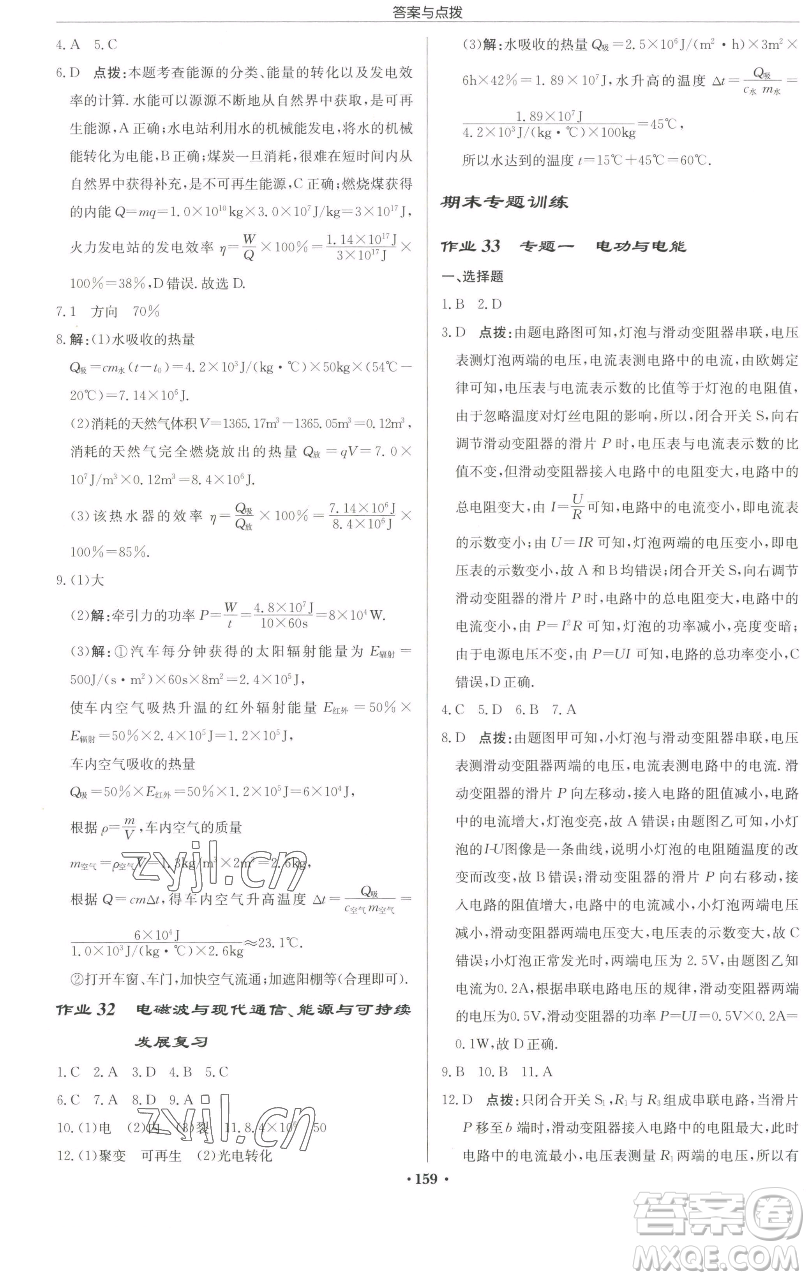 答案与点拨
4. A  5. C
6. D  点拨：本题考查能源的分类、能量的转化以及发电效
率的计算. 水能可以源源不断地从自然界中获取，是可再
生能源，A 正确；水电站利用水的机械能发电，将水的机械
能转化为电能，B 正确；煤炭一旦消耗，很难在短时间内从
自然界中获得补充，是不可再生能源，C 正确；燃烧煤获得
的内能 Q=mq=1.0×10¹⁰kg×3.0×10⁷J/kg=3×10¹⁷J，
火力发电站的发电效率 η=W/Q×100%=1.14×10¹⁷J/3×10¹⁷J×
100%=38%，D 错误. 故选 D.
7. 1  方向  70%
8. 解：(1)水吸收的热量
Q吸=cm水(t－t₀)=4.2×10³J/(kg·℃)×50kg×(54℃－
20℃)=7.14×10⁶J.
(2)消耗的天然气体积 V=1365.17m³－1365.05m³=0.12m³.
天然气完全燃烧放出的热量 Q放=qV=7.0×
10⁷J/m³×0.12m³=8.4×10⁶J.
(3)该热水器的效率 η=Q吸/Q放×100%=7.14×10⁶J/8.4×10⁶J×
100%=85%.
9. (1)大
(2)解：牵引力的功率 P=W/t=4.8×10⁷J/10×60s=8×10⁴W.
(3)解：①汽车每分钟获得的太阳辐射能量为 E辐射=
500J/(s·m²)×60s×8m²=2.4×10⁵J，
使车内空气吸热升温的红外辐射能量 E红外=50%×
E辐射=50%×2.4×10⁵J=1.2×10⁵J，
车内空气吸收的热量
Q吸=50%×E红外=50%×1.2×10⁵J=6×10⁴J，
根据 ρ=m/V，车内空气的质量
m空气=ρ空气V=1.3kg/m³×2m³=2.6kg，
根据 Q=cmΔt，得车内空气升高温度 Δt=Q吸/c空气m空气=
6×10⁴J/1.0×10³J/(kg·℃)×2.6kg≈23.1℃.
②打开车窗、车门，加快空气流通；加遮阳棚等(合理即可).
作业 32  电磁波与现代通信、能源与可持续
发展复习
1. C  2. A  3. D  4. B  5. C
6. C  7. A  8. D  9. A
10. (1)电  (2)内  (3)裂  11. 8.4×10⁶  50
12. (1)聚变  可再生  (2)光电转化
(3)解：水吸收的热量 Q吸=2.5×10⁶J/(m²·h)×3m²×
6h×42%=1.89×10⁷J，水升高的温度 Δt=Q吸/c水m水=
1.89×10⁷J/4.2×10³J/(kg·℃)×100kg=45℃，
所以水达到的温度 t=15℃+45℃=60℃.
期末专题训练
作业 33  专题一  电功与电能
一、选择题
1. B  2. D
3. D  点拨：由题电路图可知，灯泡与滑动变阻器串联，电压
表测灯泡两端的电压，电流表测电路中的电流，由欧姆定
律可知，电压表与电流表示数的比值等于灯泡的电阻值，
由于忽略温度对灯丝电阻的影响，所以，闭合开关 S，向右
调节滑动变阻器的滑片 P 时，电压表与电流表示数的比
值不变，但滑动变阻器接入电路中的电阻变大，电路中的
总电阻变大，由 I=U/R 可知，电路中的电流变小，即电流表
的示数变小；由 U=IR 可知，灯泡两端的电压变小，即电压
表的示数变小，故 A 和 B 均错误；闭合开关 S，向右调节
滑动变阻器的滑片 P 时，电路中的总电阻变大，电流变小，
由 P=I²R 可知，灯泡的功率减小，亮度变暗；
由于电源电压不变，由 P=UI 可知，电路的总功率变小，C
错误，D 正确.
4. C  5. D  6. B  7. A
8. D  点拨：由题图甲可知，小灯泡与滑动变阻器串联，电压
表测滑动变阻器两端的电压，电流表测电路中的电流. 滑
动变阻器的滑片 P 向左移动，接入电路的阻值减小，电路
中的电流增大，灯泡变亮，故 A 错误；由题图乙可知，小灯
泡的I-U图像是一条曲线，说明小灯泡的电阻随温度的改
变而改变，故 B 错误；滑动变阻器的滑片 P 向右移动，接
入电路的阻值增大，电路中的电流减小，小灯泡两端电压
减小，滑动变阻器两端电压变大，电压表的示数变大，故 C
错误；小灯泡正常发光时，两端的电压为 2.5V，此时的电
流为0.2A，根据串联电路电压的规律，滑动变阻器两端电
压为 0.5V，滑动变阻器的功率 P=UI=0.5V×0.2A=
0.1W，故 D 正确.
9. B  10. B  11. A
12. D  点拨：只闭合开关 S₁，R₁与 R₃组成串联电路，当滑片
P 移至 b 端时，滑动变阻器接入电路中的电阻最大，此时
电路中的电流最小，电阻 R₁ 两端的电压最小，所以有
· 159 ·
zyjl.cn
zyjl.cn
答案圈
MXQE.COM